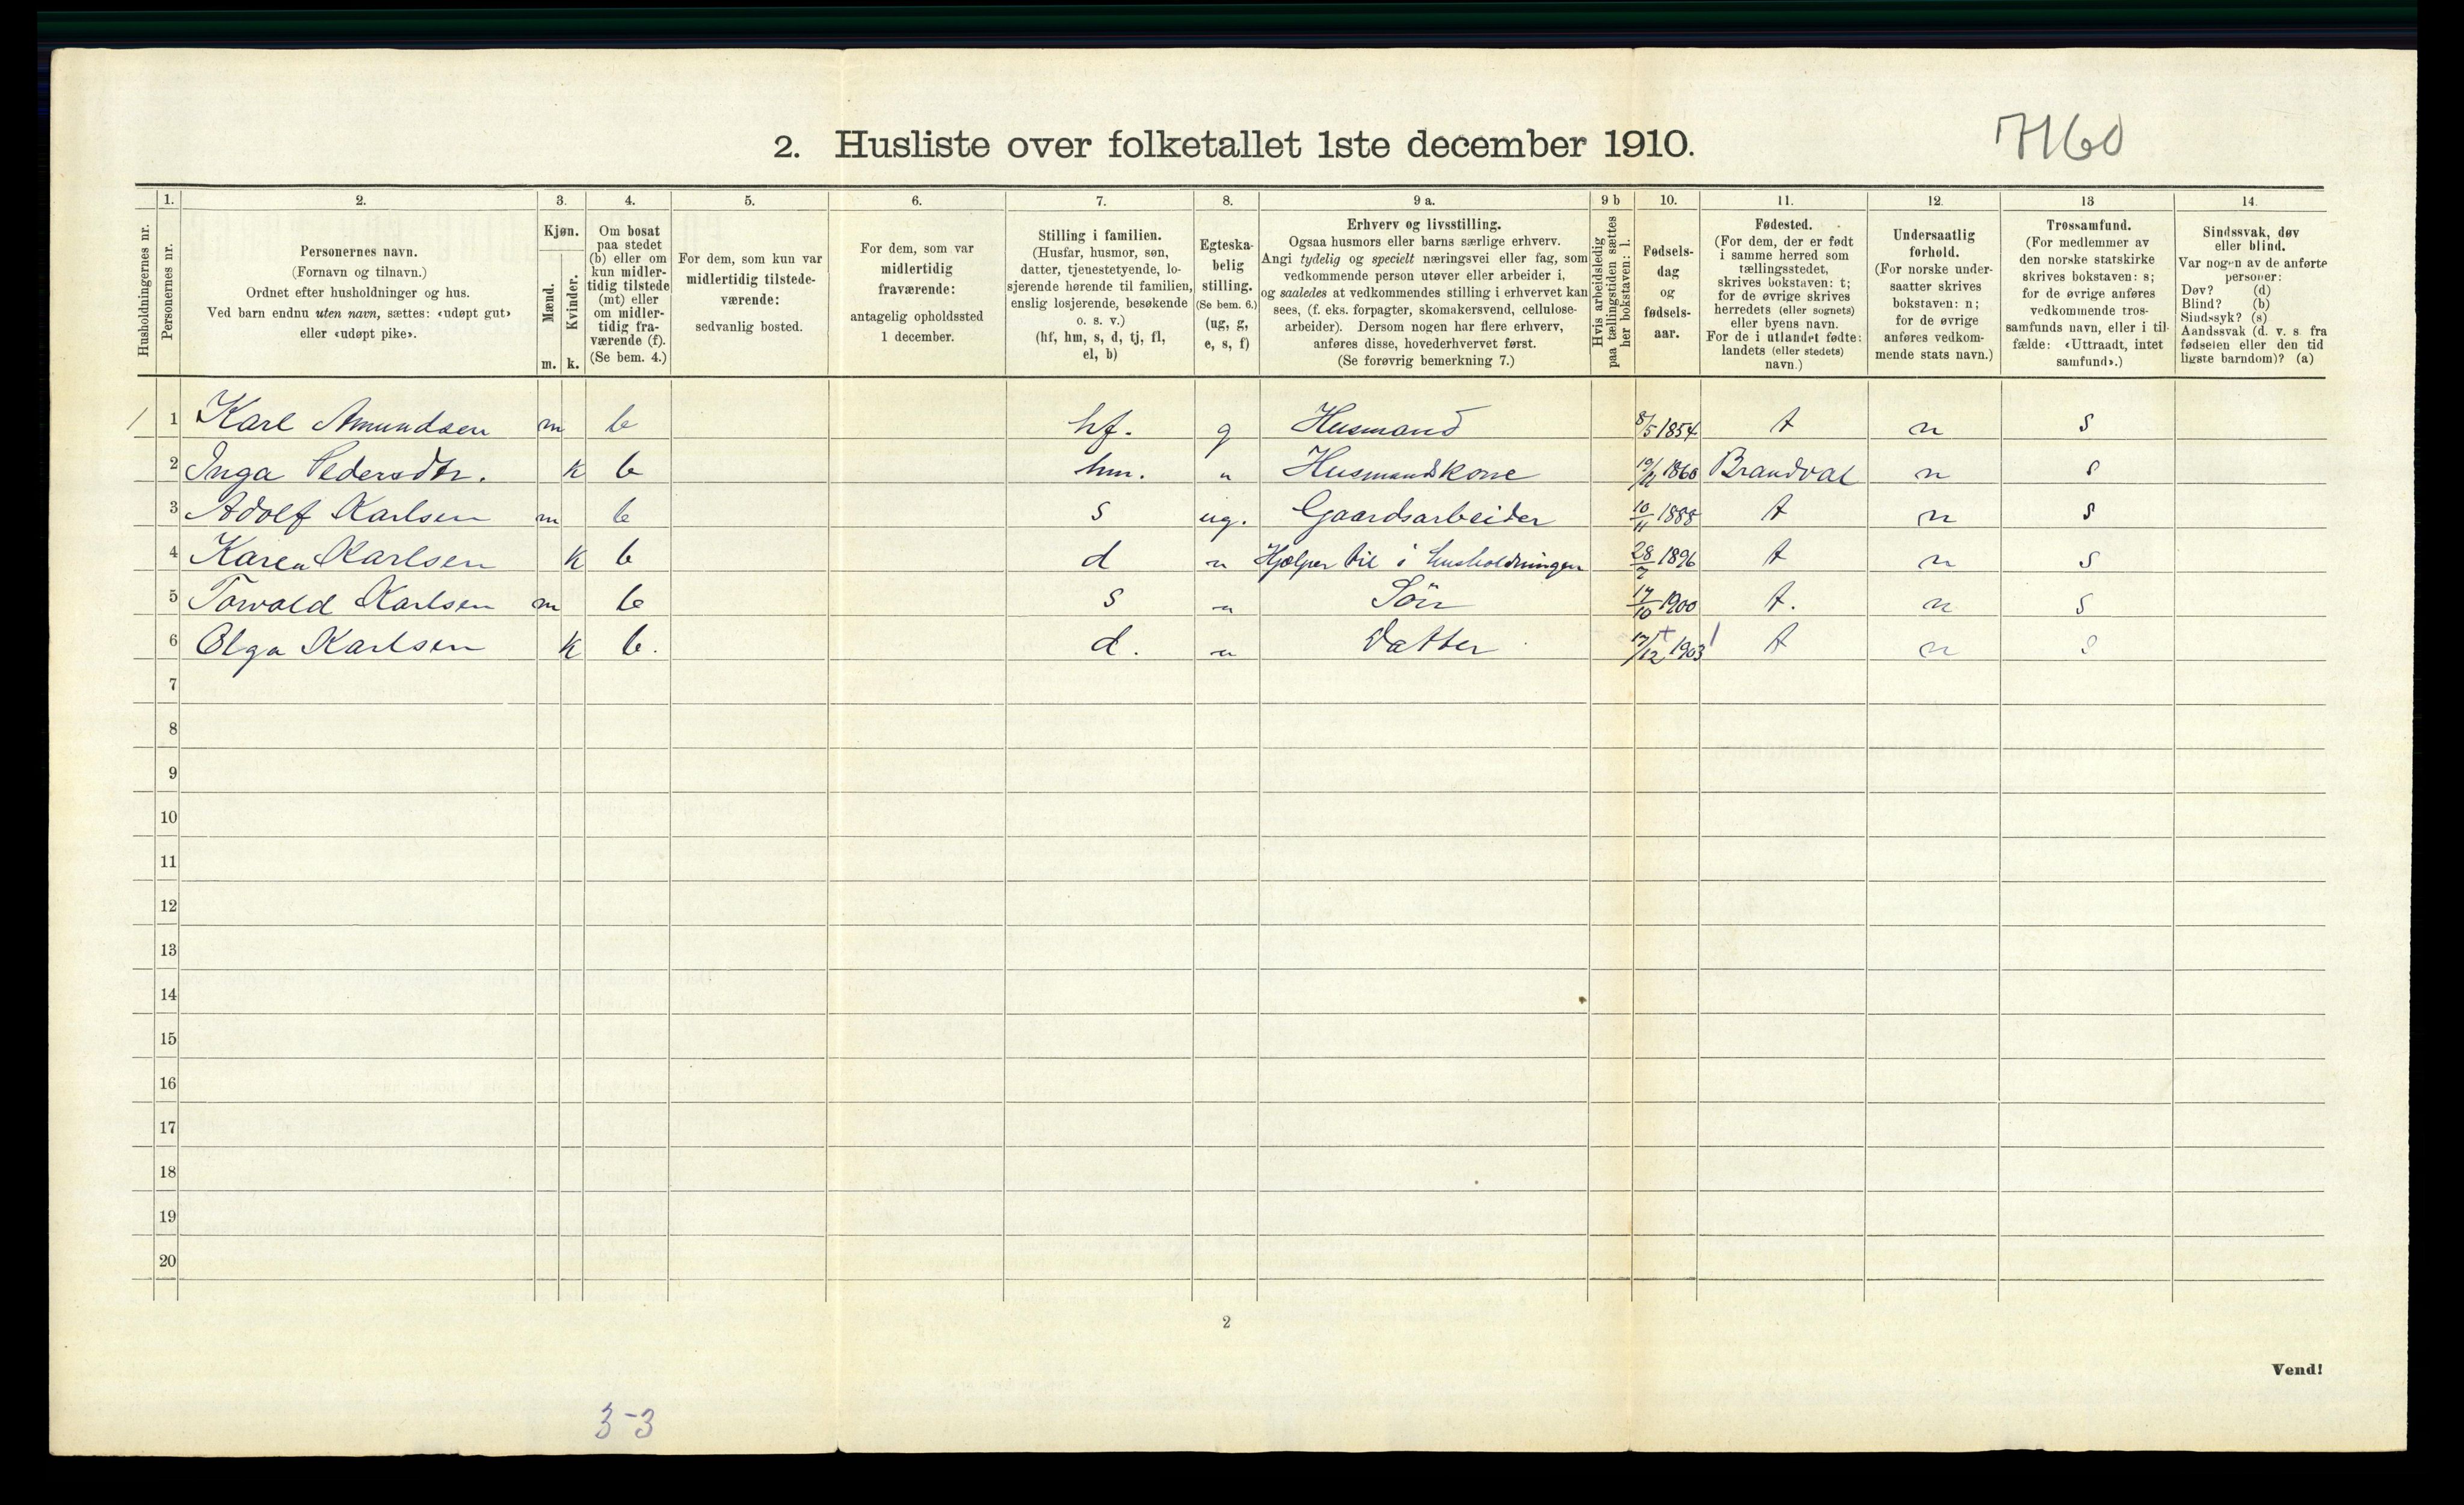 2. Husliste over folketallet 1ste december 1910.
7160
Husholdningernes nr.
1. Personernes nr.
2. Personernes navn.
(Fornavn og tilnavn.)
Ordnet efter husholdninger og hus.
Ved barn endnu uten navn, sættes: «udøpt gut»
eller «udøpt pike».
3. Kjøn.
Mænd. m.
Kvinder. k.
4. Om bosat
paa stedet
(b) eller om
kun midler-
tidig tilstede
(mt) eller
om midler-
tidig fra-
værende (f).
(Se bem. 4.)
5. For dem, som kun var
midlertidig tilstede-
værende:
sedvanlig bosted.
6. For dem, som var
midlertidig
fraværende:
antagelig opholdssted
1 december.
7. Stilling i familien.
(Husfar, husmor, søn,
datter, tjenestetyende, lo-
sjerende hørende til familien,
enslig losjerende, besøkende
o. s. v.)
(hf, hm, s, d, tj, fl,
el, b)
8. Egteska-
belig
stilling.
(Se bem. 6.)
(ug, g,
e, s, f)
9 a. Erhverv og livsstilling.
Ogsaa husmors eller barns særlige erhverv.
Angi tydelig og specielt næringsvei eller fag, som
vedkommende person utøver eller arbeider i,
og saaledes at vedkommendes stilling i erhvervet kan
sees, (f. eks. forpagter, skomakersvend, cellulose-
arbeider). Dersom nogen har flere erhverv,
anføres disse, hovederhvervet først.
(Se forøvrig bemerkning 7.)
9 b Hvis arbeidsledig
paa tællingstiden sættes
her bokstaven: l.
10. Fødsels-
dag
og
fødsels-
aar.
11. Fødested.
(For dem, der er født
i samme herred som
tællingsstedet,
skrives bokstaven: t;
for de øvrige skrives
herredets (eller sognets)
eller byens navn.
For de i utlandet fødte:
landets (eller stedets)
navn.)
12. Undersaatlig
forhold.
(For norske under-
saatter skrives
bokstaven: n;
for de øvrige
anføres vedkom-
mende stats navn.)
13 Trossamfund.
(For medlemmer av
den norske statskirke
skrives bokstaven: s;
for de øvrige anføres
vedkommende tros-
samfunds navn, eller i til-
fælde: «Uttraadt, intet
samfund».)
14. Sindssvak, døv
eller blind.
Var nogen av de anførte
personer:
Døv? (d)
Blind? (b)
Sindssyk? (s)
Aandssvak (d. v. s. fra
fødselen eller den tid
ligste barndom)? (a)
1 1 Karl Amundsen m b hf. g Husmand 8/5 1854 t n s
2 Inga Pedersdtr. k b hm. " Husmandskone 1860 Brandval n s
3 Adolf Karlsen m b s ug. Gaardsarbeider 10/11 1888 t n s
4 Karen Karlsen k b d " Hjælper til i husholdningen 28/7 1896 t n s
5 Torvald Karlsen m b s " Søn 17/10 1900 t. n s
6 Olga Karlsen k b. d. " Datter 17/12 1903 t n s
7
8
9
10
11
12
13
14
15
16
17
18
19
20
2
Vend!
3-3